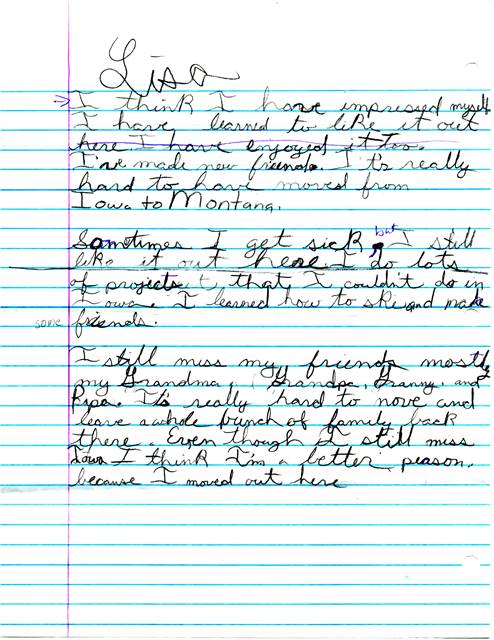 Lisa
I think I have impressed myself
I have learned to like it out
here I have enjoyed it too.
I've made new friends. It's really
hard to have moved from
Iowa to Montana.
Sometimes I get sick, but I still
like it out here. I do lots
of projects that I couldn't do in
Iowa. I learned how to ski and make
some friends.
I still miss my friends mostly
my Grandma, Grandpa, Granny, and
Papa. It's really hard to move and
leave a whole bunch of family back
there. Even though I still miss
Iowa I think I'm a better peason.
because I moved out here